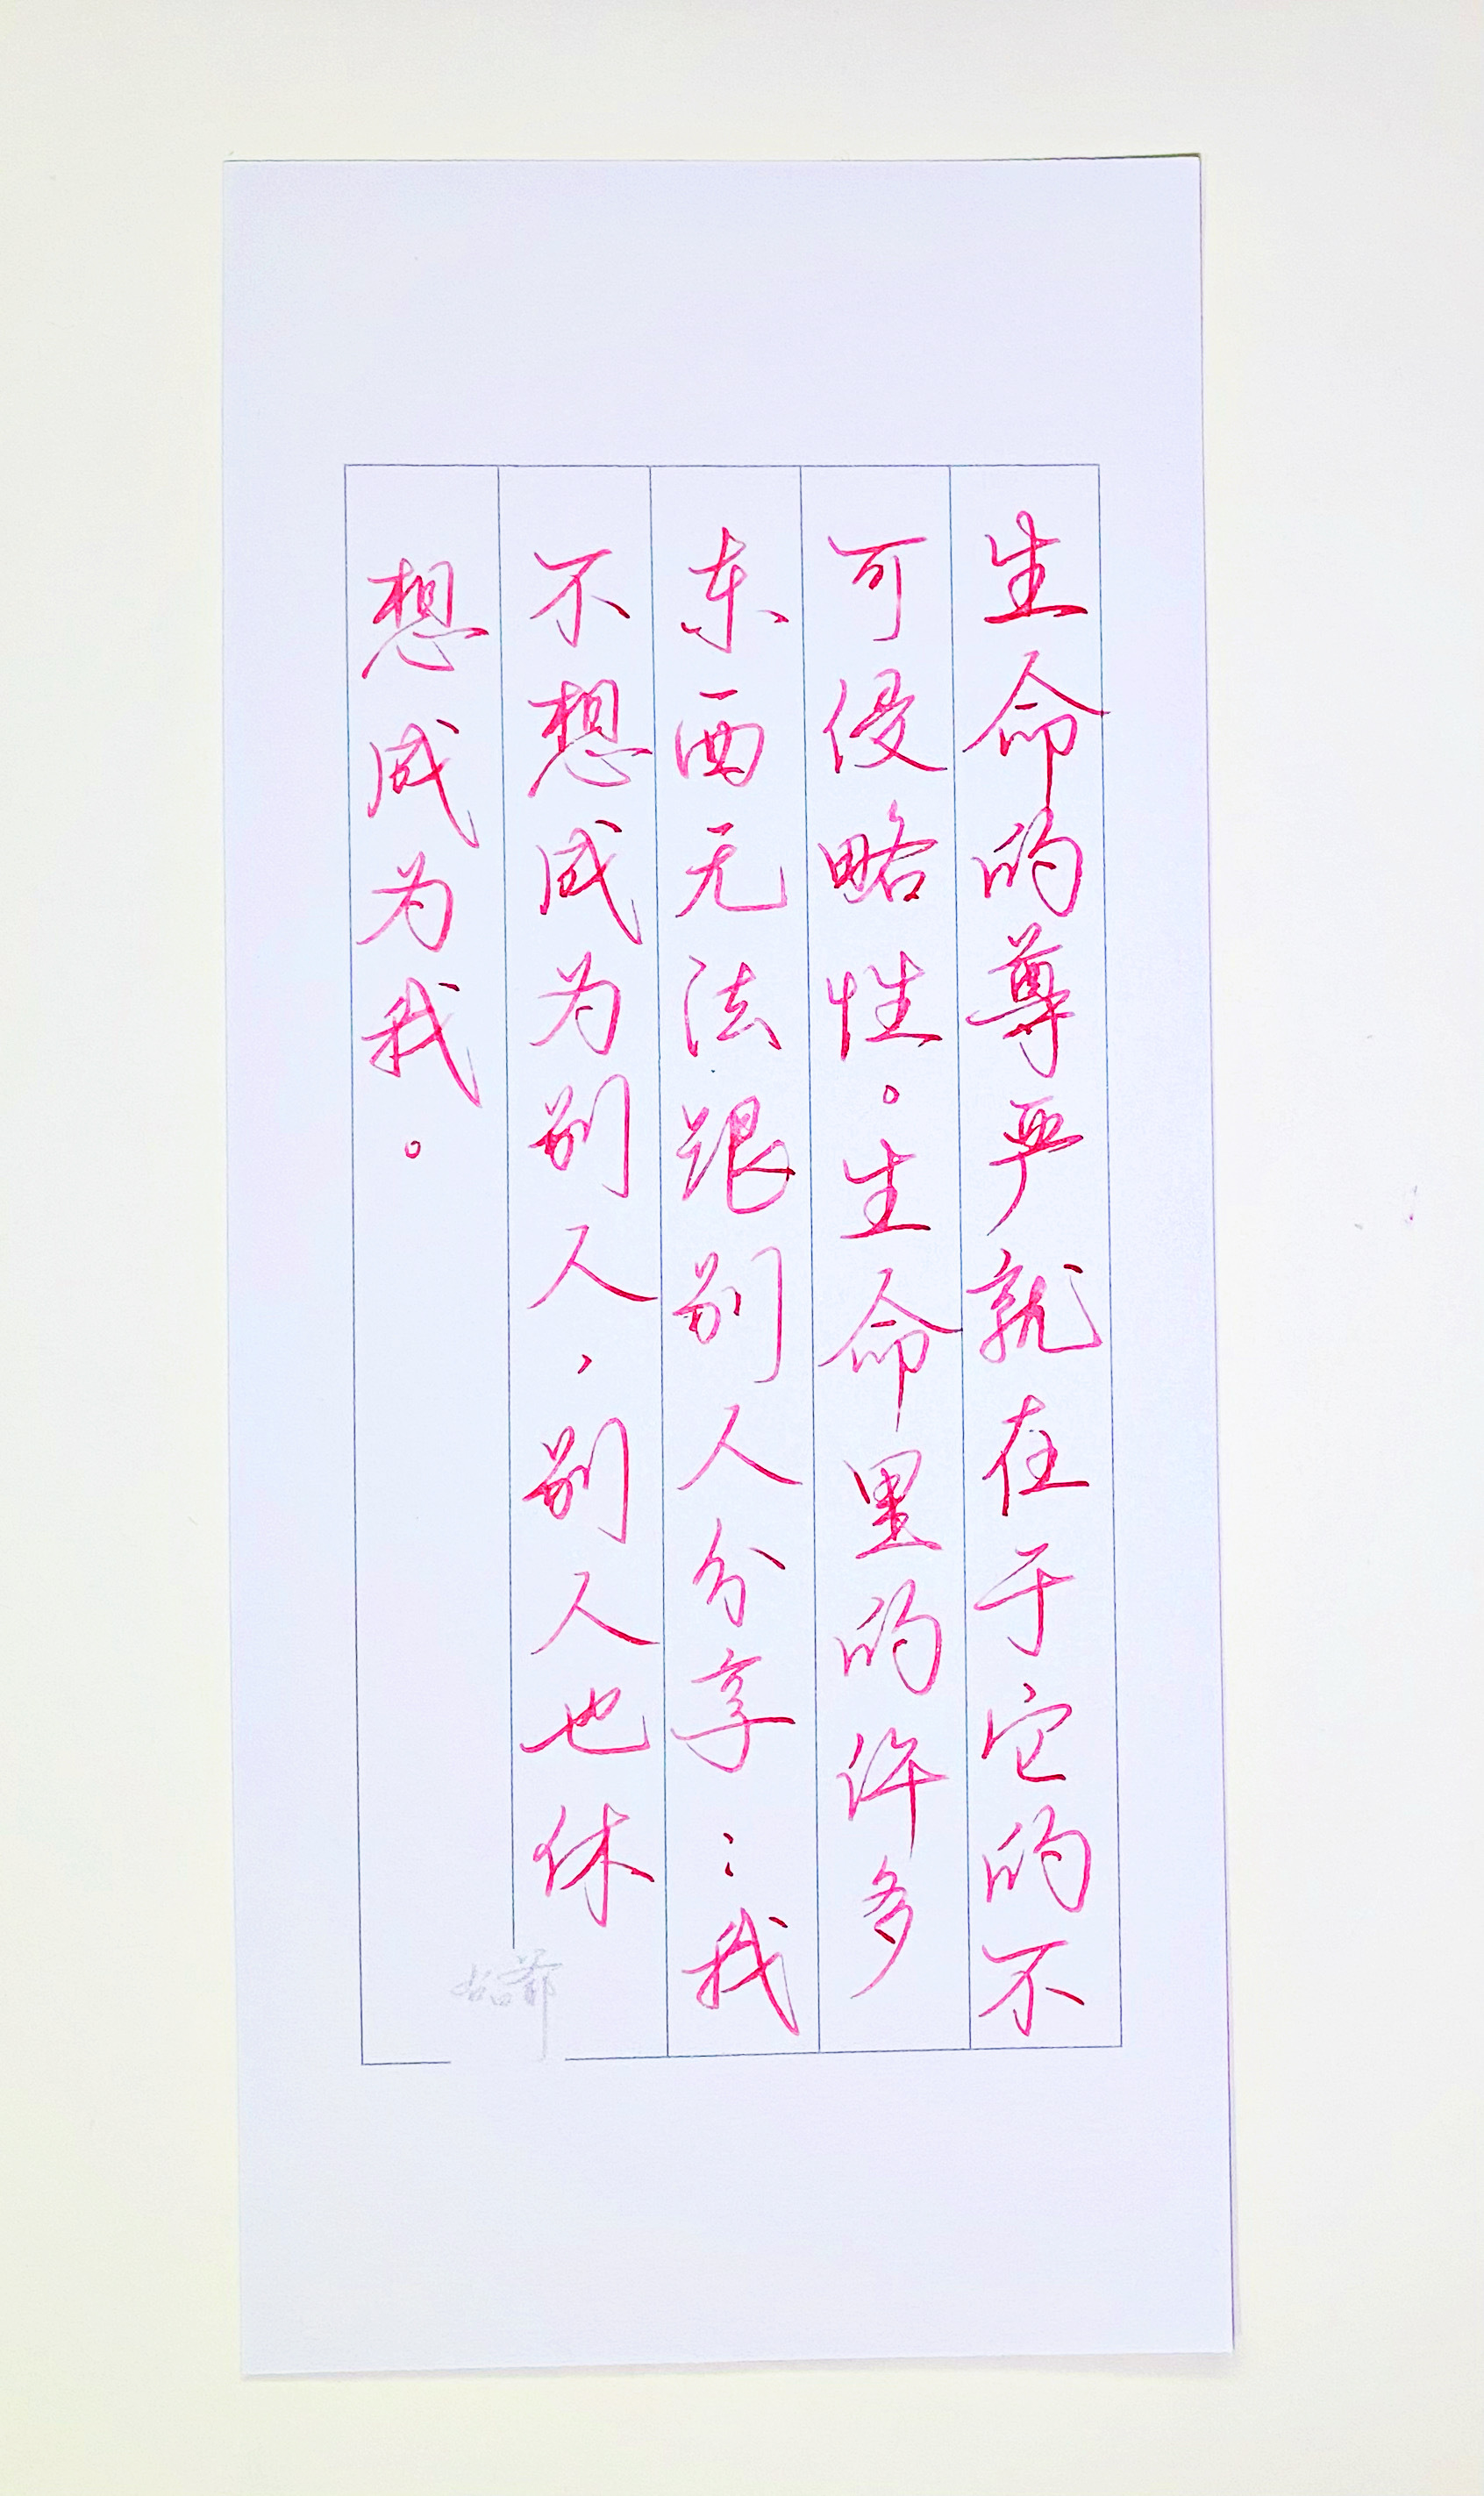 生命的尊严就在于它的不
可侵略性。生命里的许多
东西无法跟别人分享:我
不想成为别人,别人也休
想成为我。